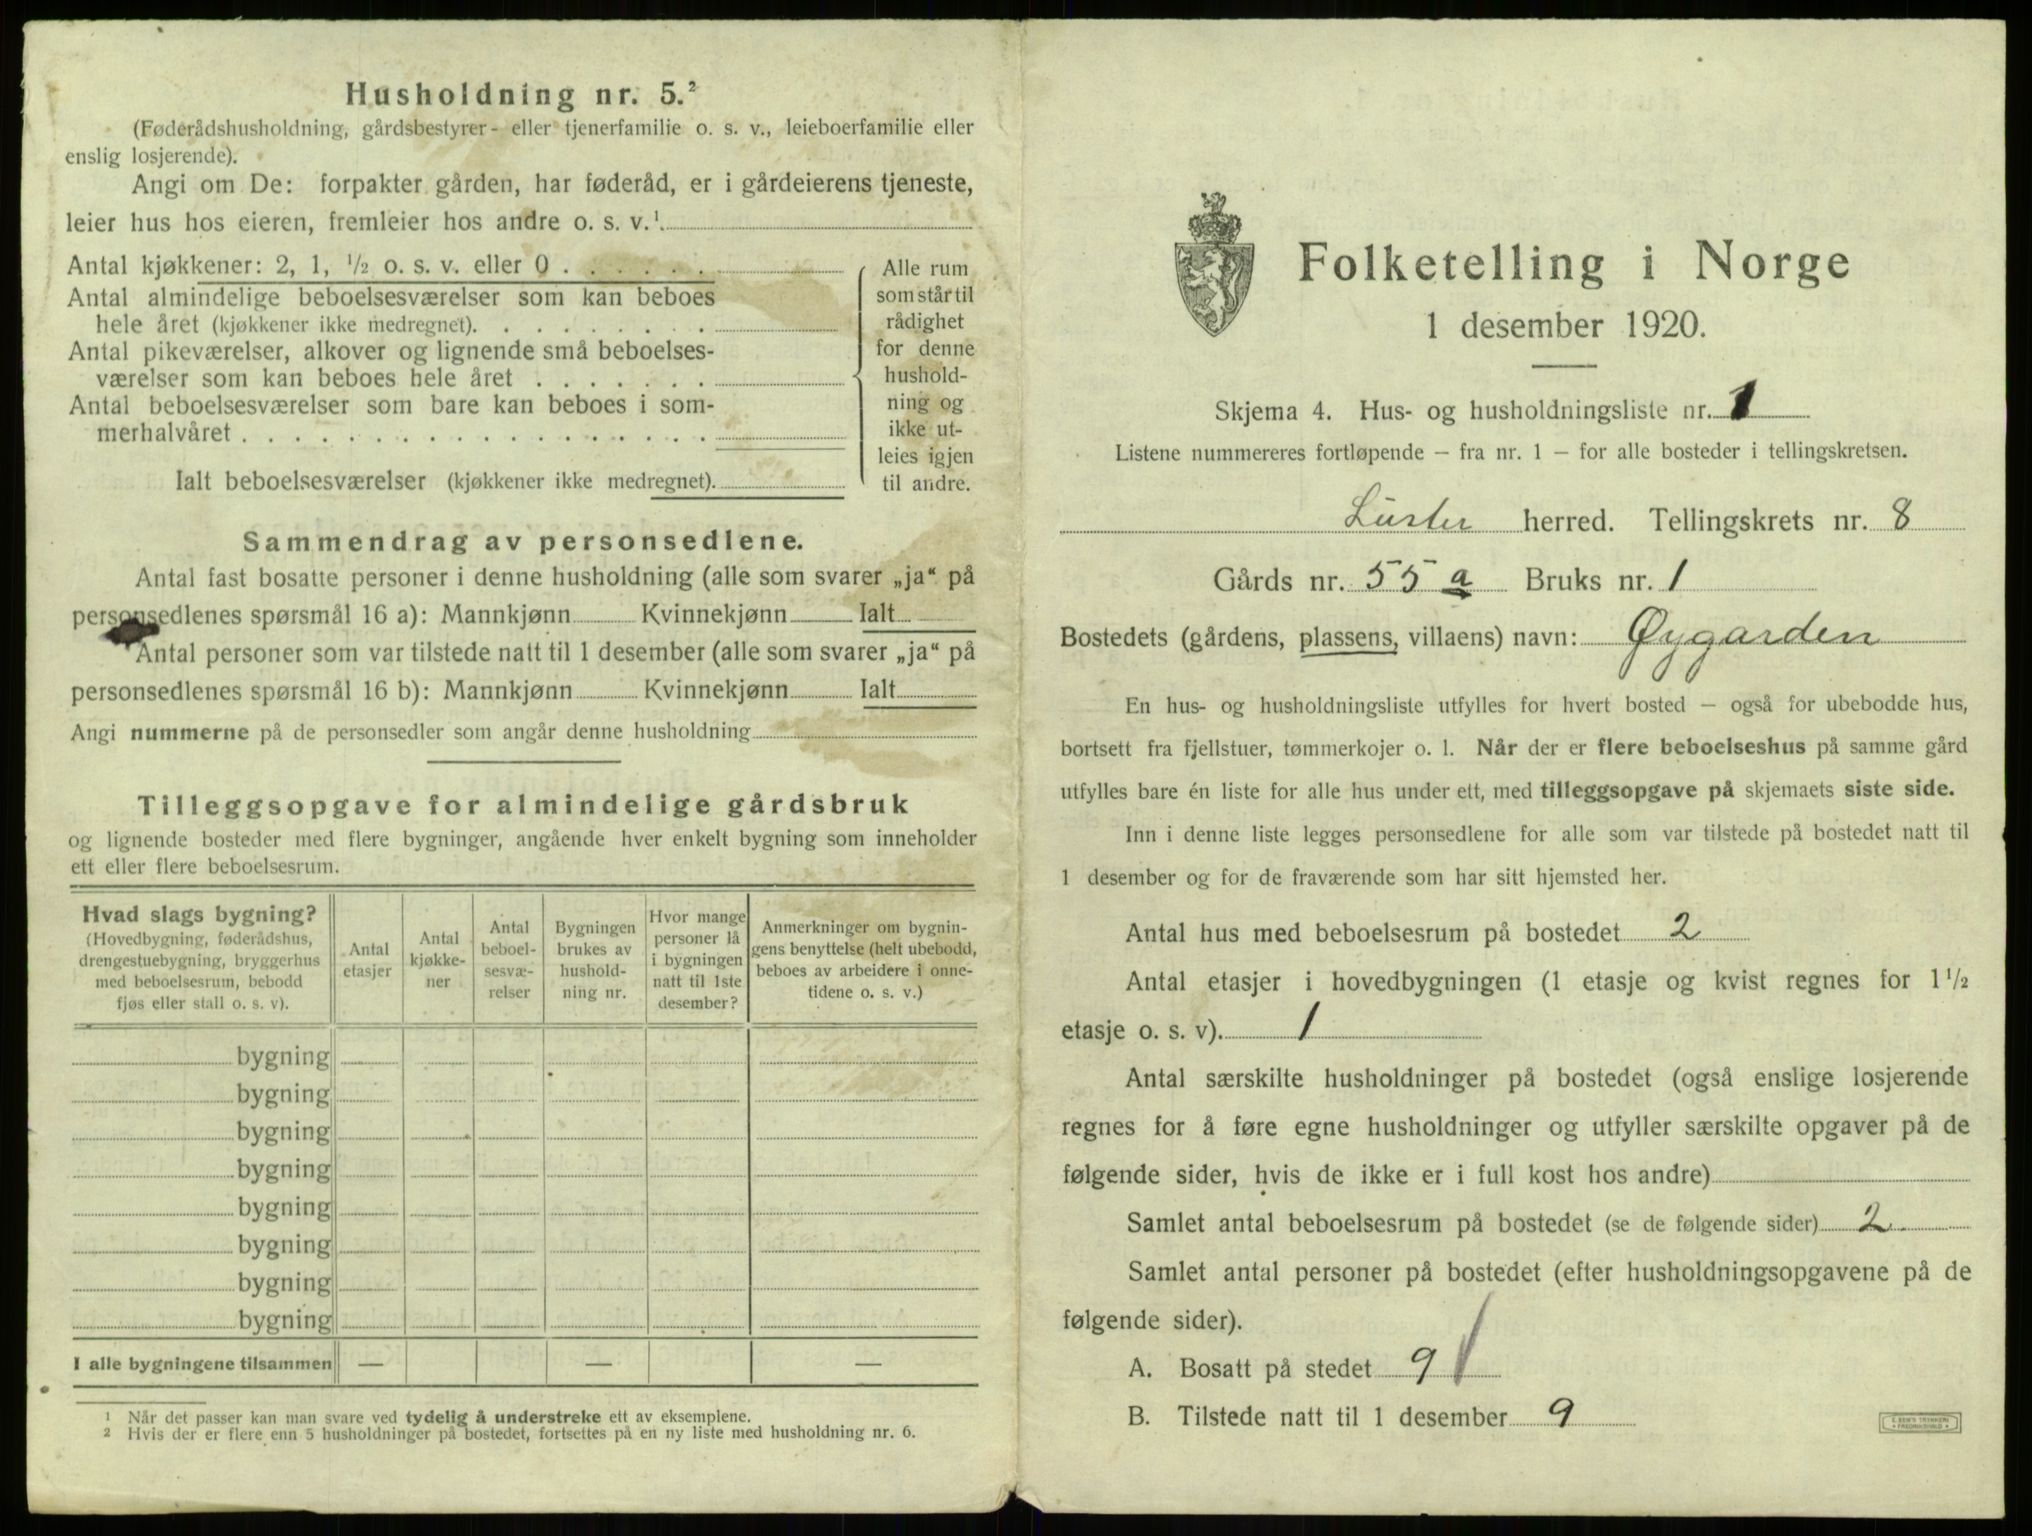 Husholdning nr. 5.²
(Føderådshusholdning, gårdsbestyrer- eller tjenerfamilie o. s. v., leieboerfamilie eller
enslig losjerende).
Angi om De: forpakter gården, har føderåd, er i gårdeierens tjeneste,
leier hus hos eieren, fremleier hos andre o. s. v.¹
Antal kjøkkener: 2, 1, ½ o. s. v. eller 0 . . . . . .
Antal almindelige beboelsesværelser som kan beboes
hele året (kjøkkener ikke medregnet). . . . . . . . .
Antal pikeværelser, alkover og lignende små beboelses-
værelser som kan beboes hele året . . . . . . .
Antal beboelsesværelser som bare kan beboes i som-
merhalvåret . . . . . . . . . . . . . . . . . .
Ialt beboelsesværelser (kjøkkener ikke medregnet).
Alle rum
som står til
rådighet
for denne
hushold-
ning og
ikke ut-
leies igjen
til andre.
Sammendrag av personsedlene.
Antal fast bosatte personer i denne husholdning (alle som svarer „ja“ på
personsedlenes spørsmål 16 a): Mannkjønn Kvinnekjønn Ialt
Antal personer som var tilstede natt til 1 desember (alle som svarer „ja“ på
personsedlenes spørsmål 16 b): Mannkjønn Kvinnekjønn Ialt
Angi nummerne på de personsedler som angår denne husholdning
Tilleggsopgave for almindelige gårdsbruk
og lignende bosteder med flere bygninger, angående hver enkelt bygning som inneholder
ett eller flere beboelsesrum.
Hvad slags bygning?
(Hovedbygning, føderådshus,
drengestuebygning, bryggerhus
med beboelsesrum, bebodd
fjøs eller stall o. s. v).
Antal
etasjer
Antal
kjøkke-
ner
Antal
beboel-
sesvæ-
relser
Bygningen
brukes av
hushold-
ning nr.
Hvor mange
personer lå
i bygningen
natt til 1ste
desember?
Anmerkninger om bygnin-
gens benyttelse (helt ubebodd,
beboes av arbeidere i onne-
tidene o. s. v.)
bygning
bygning
bygning
bygning
bygning
bygning
bygning
bygning
I alle bygningene tilsammen — — —
¹ Når det passer kan man svare ved tydelig å understreke ett av eksemplene.
² Hvis der er flere enn 5 husholdninger på bostedet, fortsettes på en ny liste med husholdning nr. 6.
Folketelling i Norge
1 desember 1920.
Skjema 4. Hus- og husholdningsliste nr. 1
Listene nummereres fortløpende – fra nr. 1 – for alle bosteder i tellingskretsen.
Luster herred. Tellingskrets nr. 8
Gårds nr. 55 a Bruks nr. 1
Bostedets (gårdens, plassens, villaens) navn: Øygarden
En hus- og husholdningsliste utfylles for hvert bosted – også for ubebodde hus,
bortsett fra fjellstuer, tømmerkojer o. l. Når der er flere beboelseshus på samme gård
utfylles bare én liste for alle hus under ett, med tilleggsopgave på skjemaets siste side.
Inn i denne liste legges personsedlene for alle som var tilstede på bostedet natt til
1 desember og for de fraværende som har sitt hjemsted her.
Antal hus med beboelsesrum på bostedet 2
Antal etasjer i hovedbygningen (1 etasje og kvist regnes for 1½
etasje o. s. v). 1
Antal særskilte husholdninger på bostedet (også enslige losjerende
regnes for å føre egne husholdninger og utfyller særskilte opgaver på de
følgende sider, hvis de ikke er i full kost hos andre)
Samlet antal beboelsesrum på bostedet (se de følgende sider) 2
Samlet antal personer på bostedet (efter husholdningsopgavene på de
følgende sider).
A. Bosatt på stedet 9
B. Tilstede natt til 1 desember 9